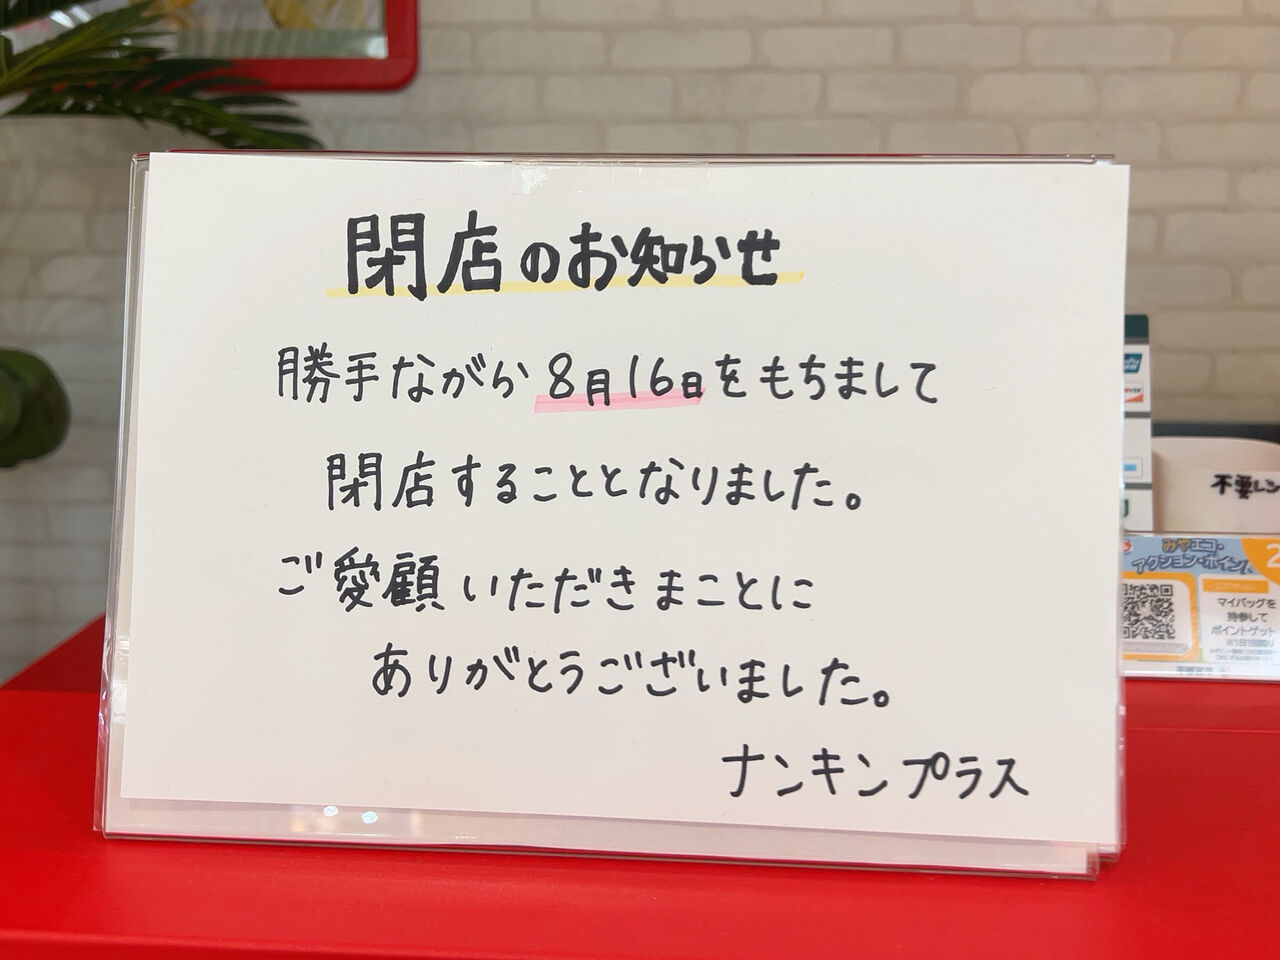 閉店のお知らせ
勝手ながら8月16日をもちまして
閉店することとなりました。
ご愛顧いただきまことに
ありがとうございました。
ナンキンプラス
不要レシ
みやエコ・
アクション・ポイント
マイバッグを
持参して
ポイントゲット